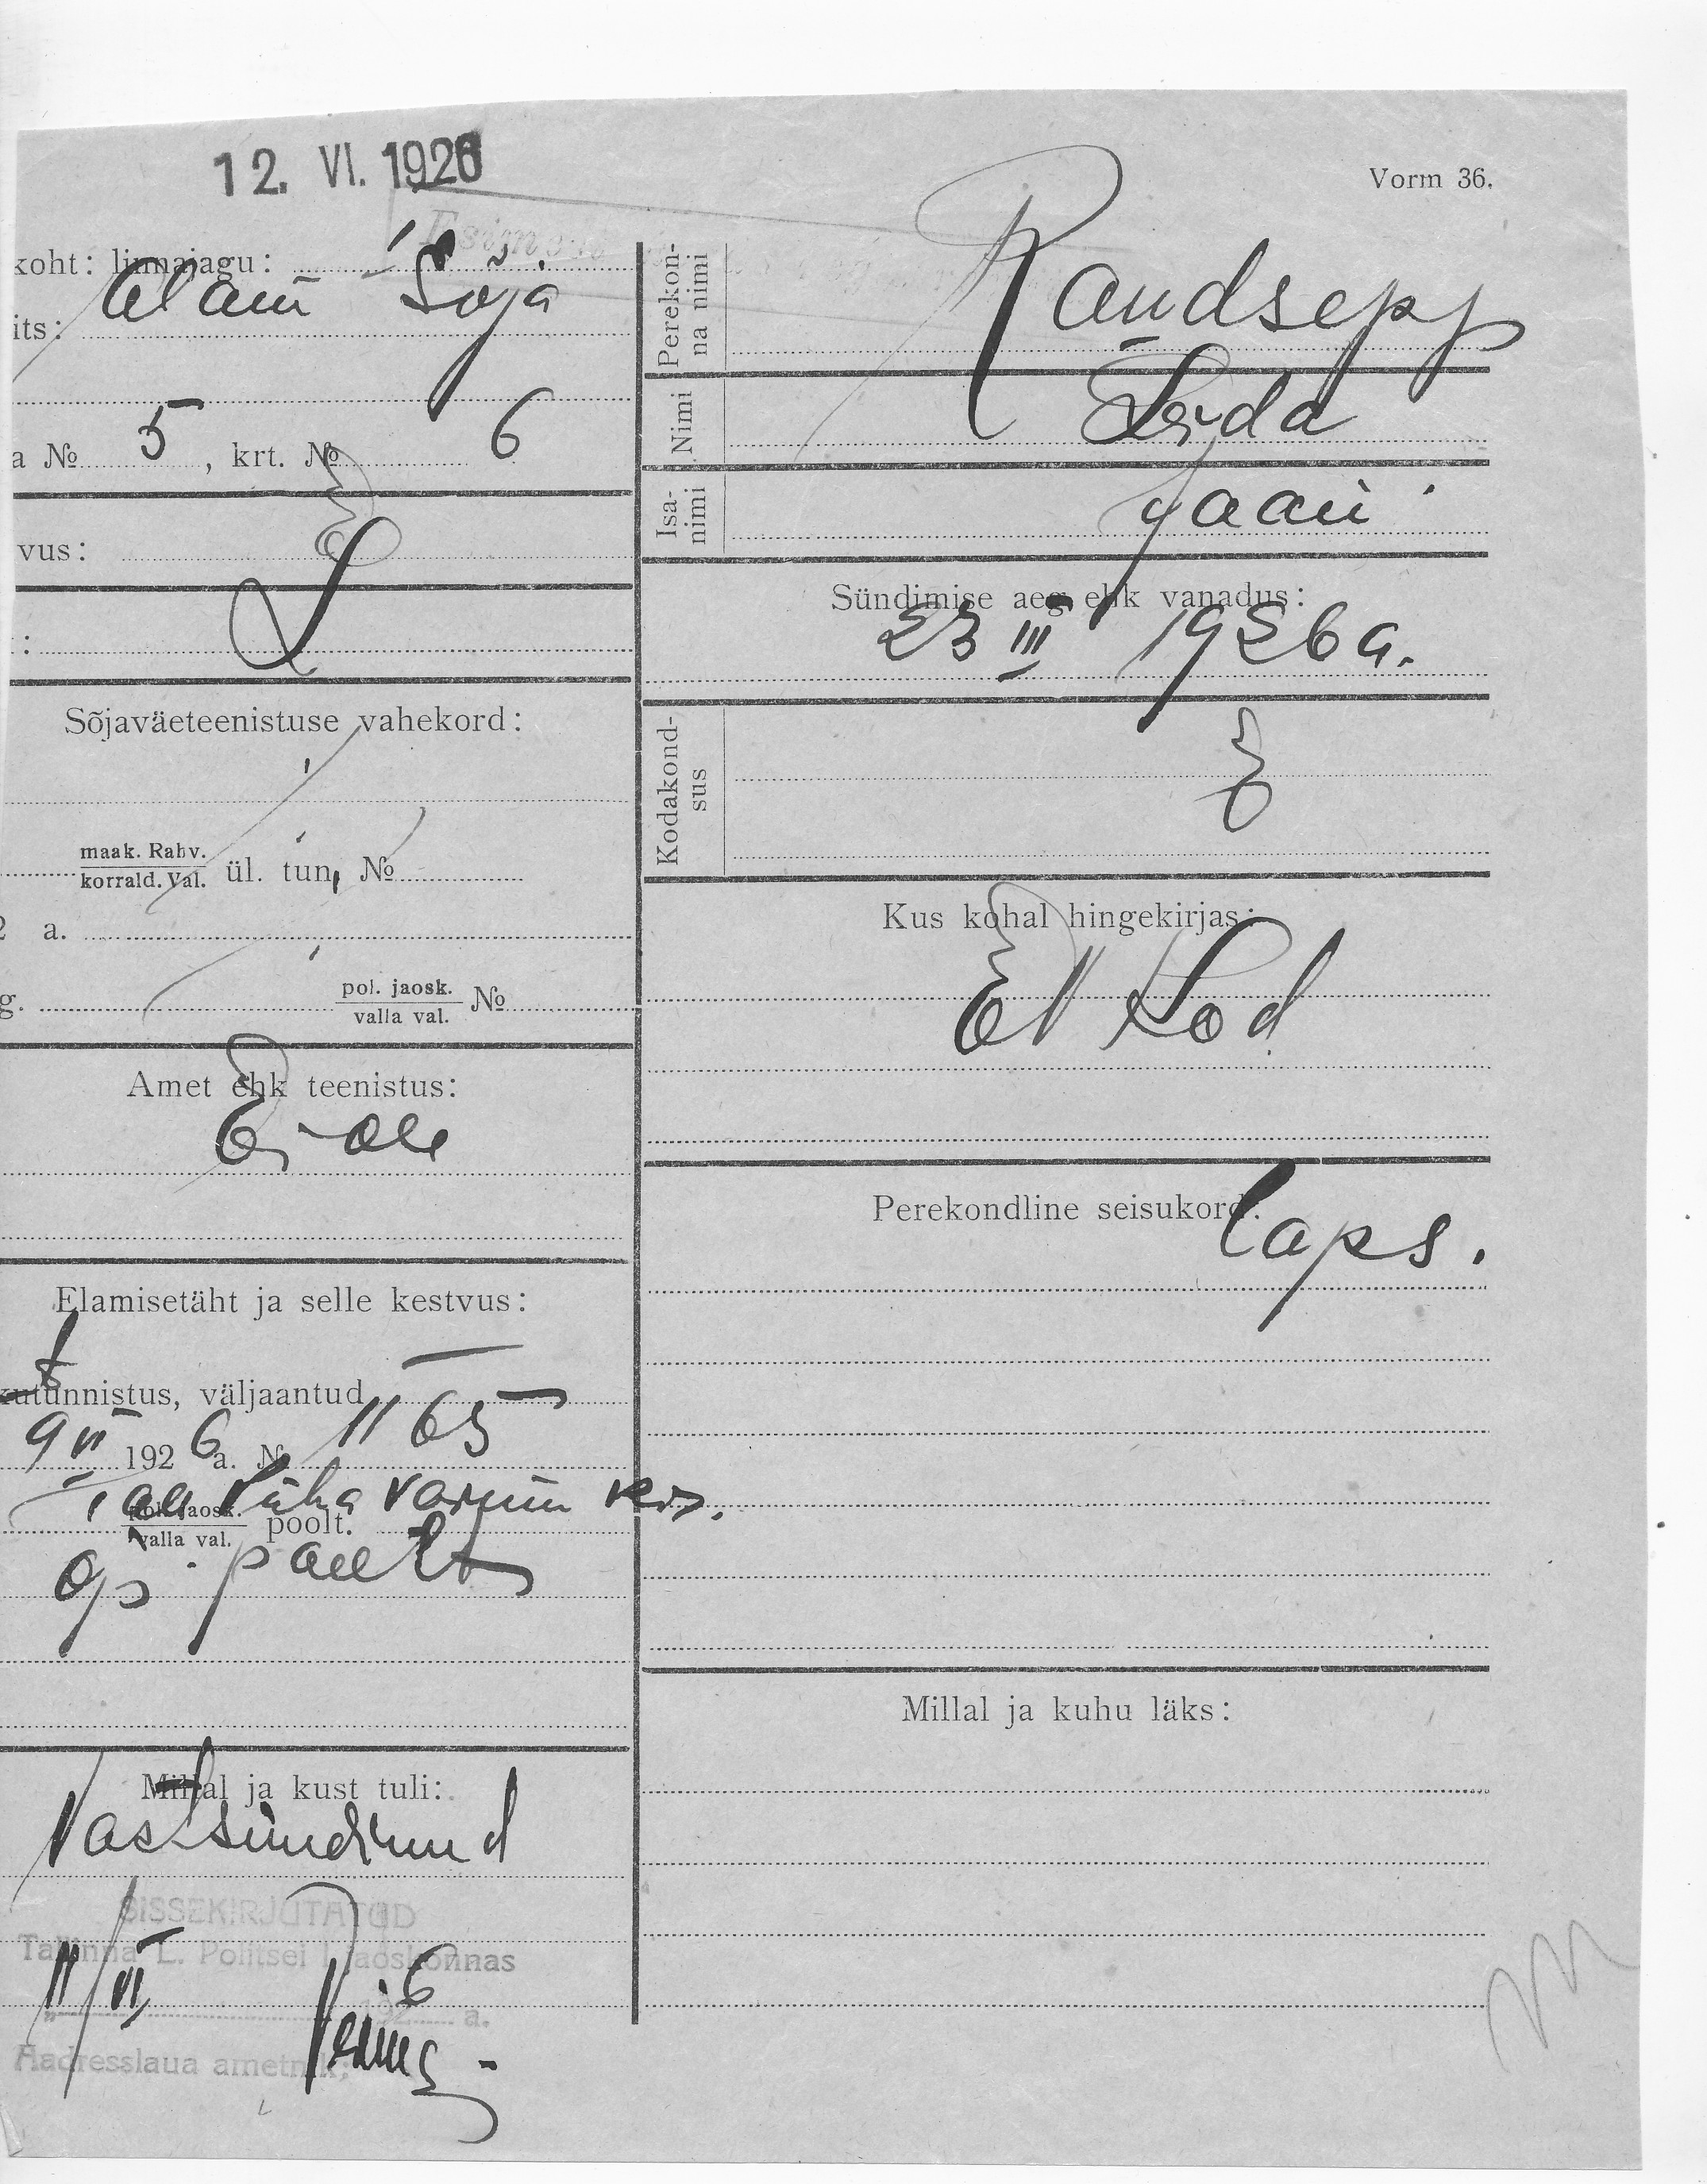 12. VI. 1926
Vorm 36.
koht: linnajagu:
its: Alam Sõja
a № 5, krt. № 6
vus:
:
Sõjaväeteenistuse vahekord:
maak. Rahv.
korrald. Val. ül. tun, №
a.
g. pol. jaosk.
valla val. №
Amet ehk teenistus:
Ei ole
Elamisetäht ja selle kestvus:
kutunnistus, väljaantud
9 VI 1926 a. № 1165
Püha vaimu
pol. jaosk.
valla val. poolt.
õp.
Millal ja kust tuli:
Vastsündinud
SISSEKIRJUTATUD
Tallinna L. Politsei I jaoskonnas
11/VI 1926 a.
Aadresslaua ametnik:
Perekon-
na nimi Raudsepp
Nimi Leida
Isa-
nimi Jaan
Sündimise aeg ehk vanadus:
23 III 1926 a.
Kodakond-
sus
Kus kohal hingekirjas:
Perekondline seisukord:
laps.
Millal ja kuhu läks: